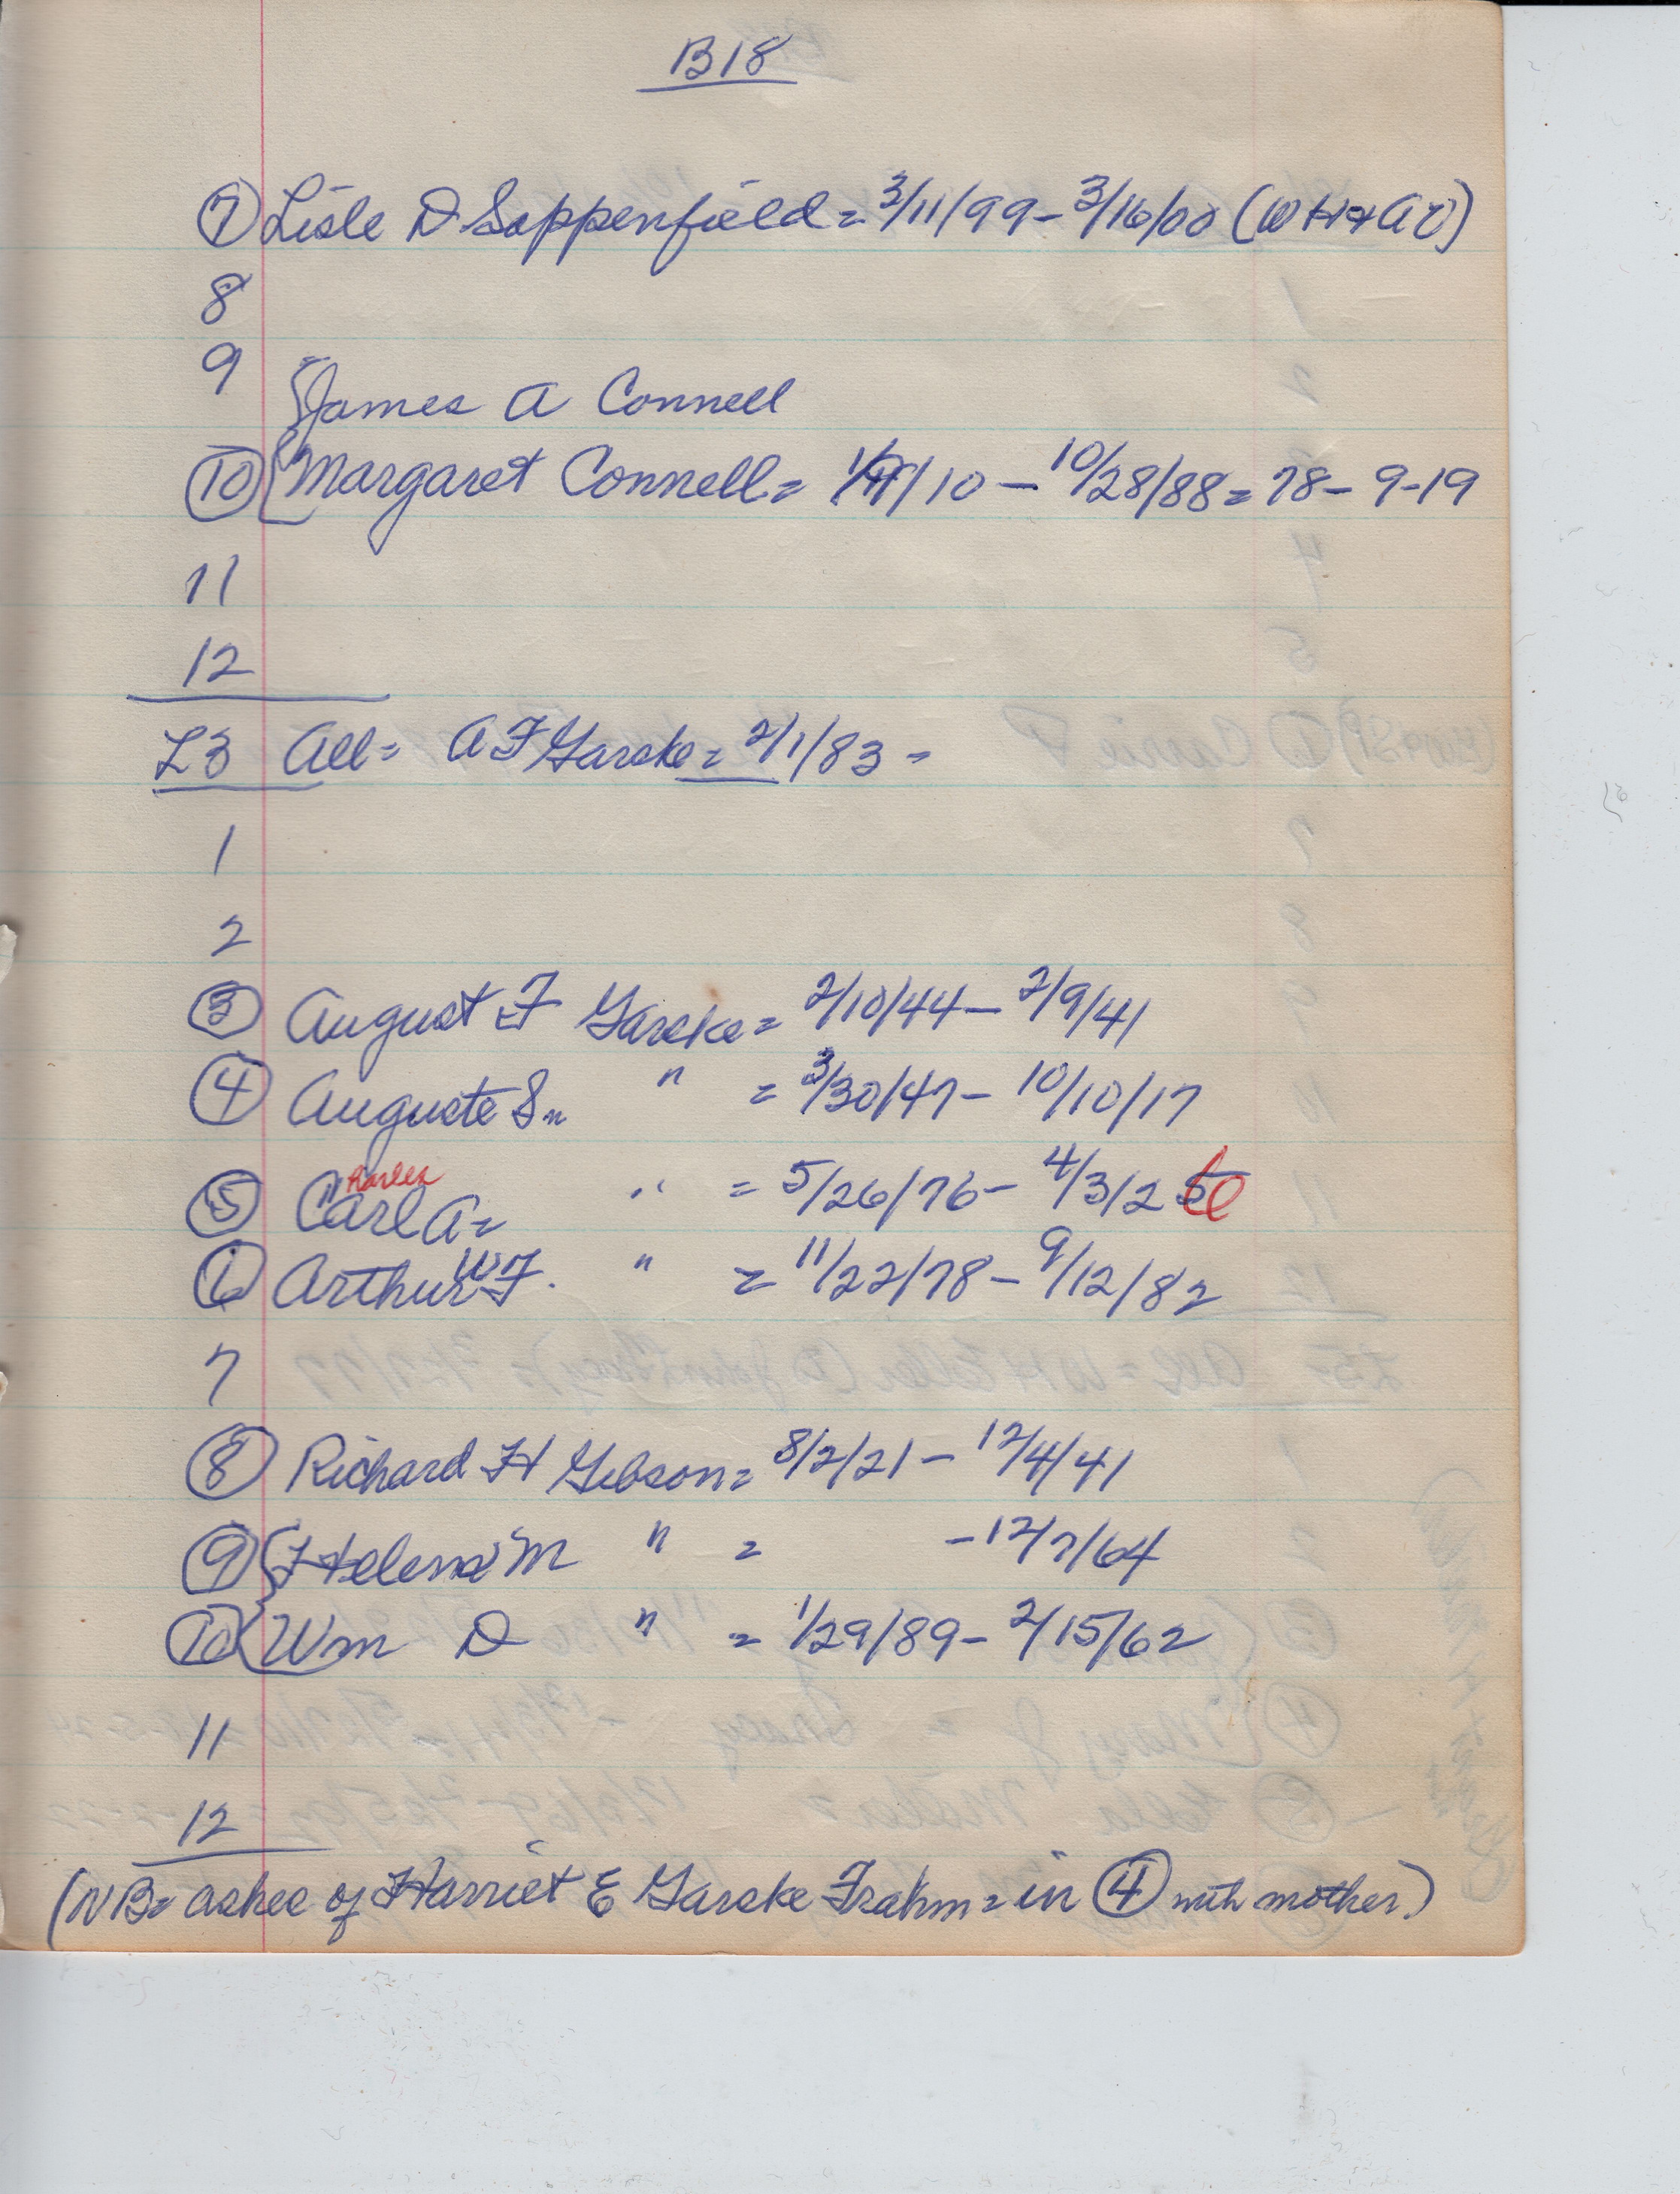 B18
7 Lisle D Sappenfield = 3/11/99 - 3/16/00 (WH + AV)
8
9 James A Connell
10 Margaret Connell = 1/ /10 - 10/28/88 = 78 - 9-19
11
12
L3 All = A F Garske = 2/1/83 =
1
2
3 August F Garske = 2/10/44 - 2/9/41
4 Auguste S = " = 3/30/47 - 10/10/17
harles
5 Carl A = " = 5/26/76 - 4/3/2
6 Arthur W F. " = 11/22/78 - 9/12/82
7
8 Richard H Gibson = 8/2/21 - 12/4/41
9 Helena M " = - 12/7/64
10 Wm D " = 1/29/89 - 2/15/62
11
12
(NB = ashes of Harriet E Garske Frahm = in 4 with mother.)